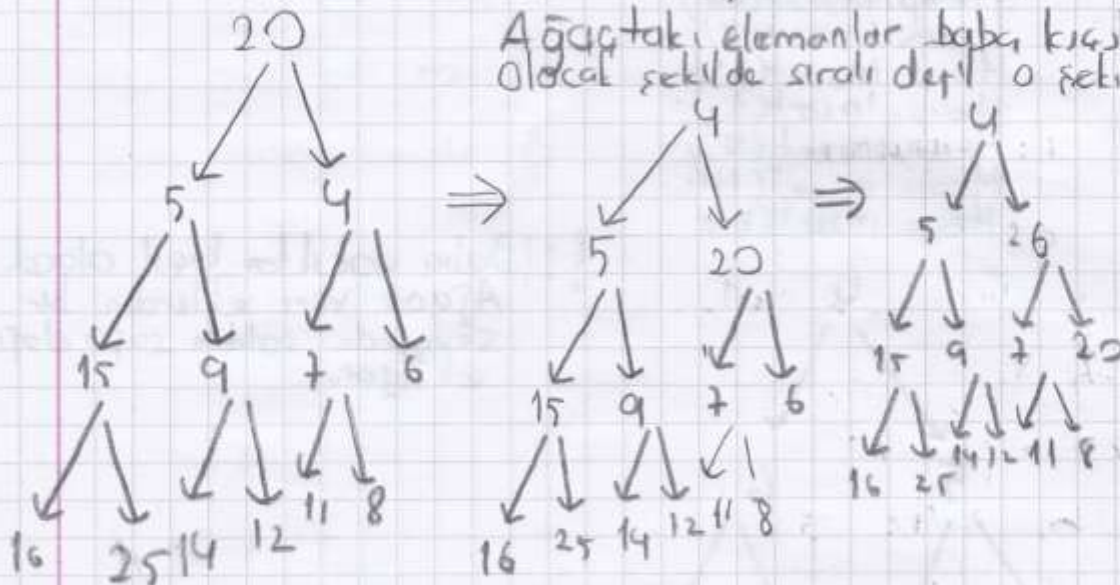 Ağaçtaki elemanlar baba
Olacak şekilde sıralı değil o
20
5 4
15 9 7 6
16 25 14 12 11 8
⇒
4
5 20
15 9 7 6
16 25 14 12 11 8
⇒
4
5 6
15 9 7 20
16 25 14 12 11 8